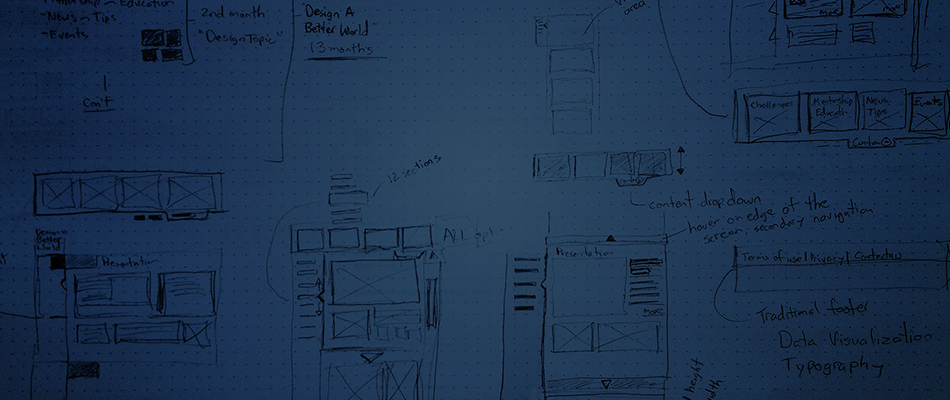 Education
~News ~ Tips
~Events
2nd month
"Design Topic"
Can't
"Design A
Better World"
13 months
area
more
Challenges
Mentorship
Educati
News,
Tips
Events
12 sections
content dropdown
hover on edge of the
screen, secondary navigation
Design a
Better
World
Presentation
Presentation
more
Terms of use | Privacy |
Traditional footer
Data Visualization
Typography
height